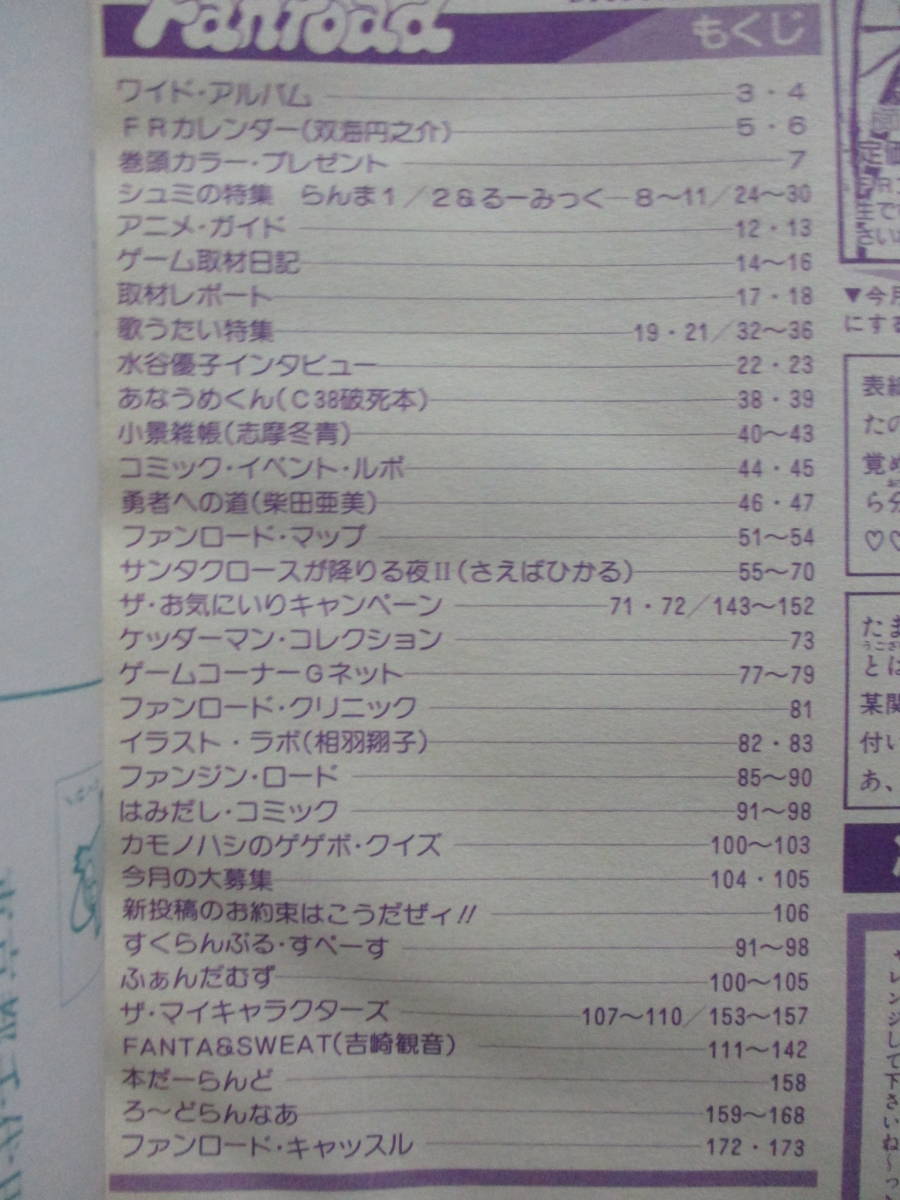 Fanroad
もくじ
ワイド・アルバム 3・4
FRカレンダー(双海円之介) 5・6
巻頭カラー・プレゼント 7
シュミの特集 らんま1/2&るーみっく 8〜11/24〜30
アニメ・ガイド 12・13
ゲーム取材日記 14〜16
取材レポート 17・18
歌うたい特集 19・21/32〜36
水谷優子インタビュー 22・23
あなうめくん(C38破死本) 38・39
小景雑帳(志摩冬青) 40〜43
コミック・イベント・ルポ 44・45
勇者への道(柴田亜美) 46・47
ファンロード・マップ 51〜54
サンタクロースが降りる夜II(さえばひかる) 55〜70
ザ・お気にいりキャンペーン 71・72/143〜152
ケッダーマン・コレクション 73
ゲームコーナーGネット 77〜79
ファンロード・クリニック 81
イラスト・ラボ(相羽翔子) 82・83
ファンジン・ロード 85〜90
はみだし・コミック 91〜98
カモノハシのゲゲボ・クイズ 100〜103
今月の大募集 104・105
新投稿のお約束はこうだぜィ!! 106
すくらんぶる・すぺーす 91〜98
ふぁんだむず 100〜105
ザ・マイキャラクターズ 107〜110/153〜157
FANTA&SWEAT(吉崎観音) 111〜142
本だーらんど 158
ろ〜どらんなあ 159〜168
ファンロード・キャッスル 172・173
定価
▼今月
にする
表紙
たの
覚め
ら分
♡♡
たま
とは
某関
付い
あ、
レンジして下さいね〜っ